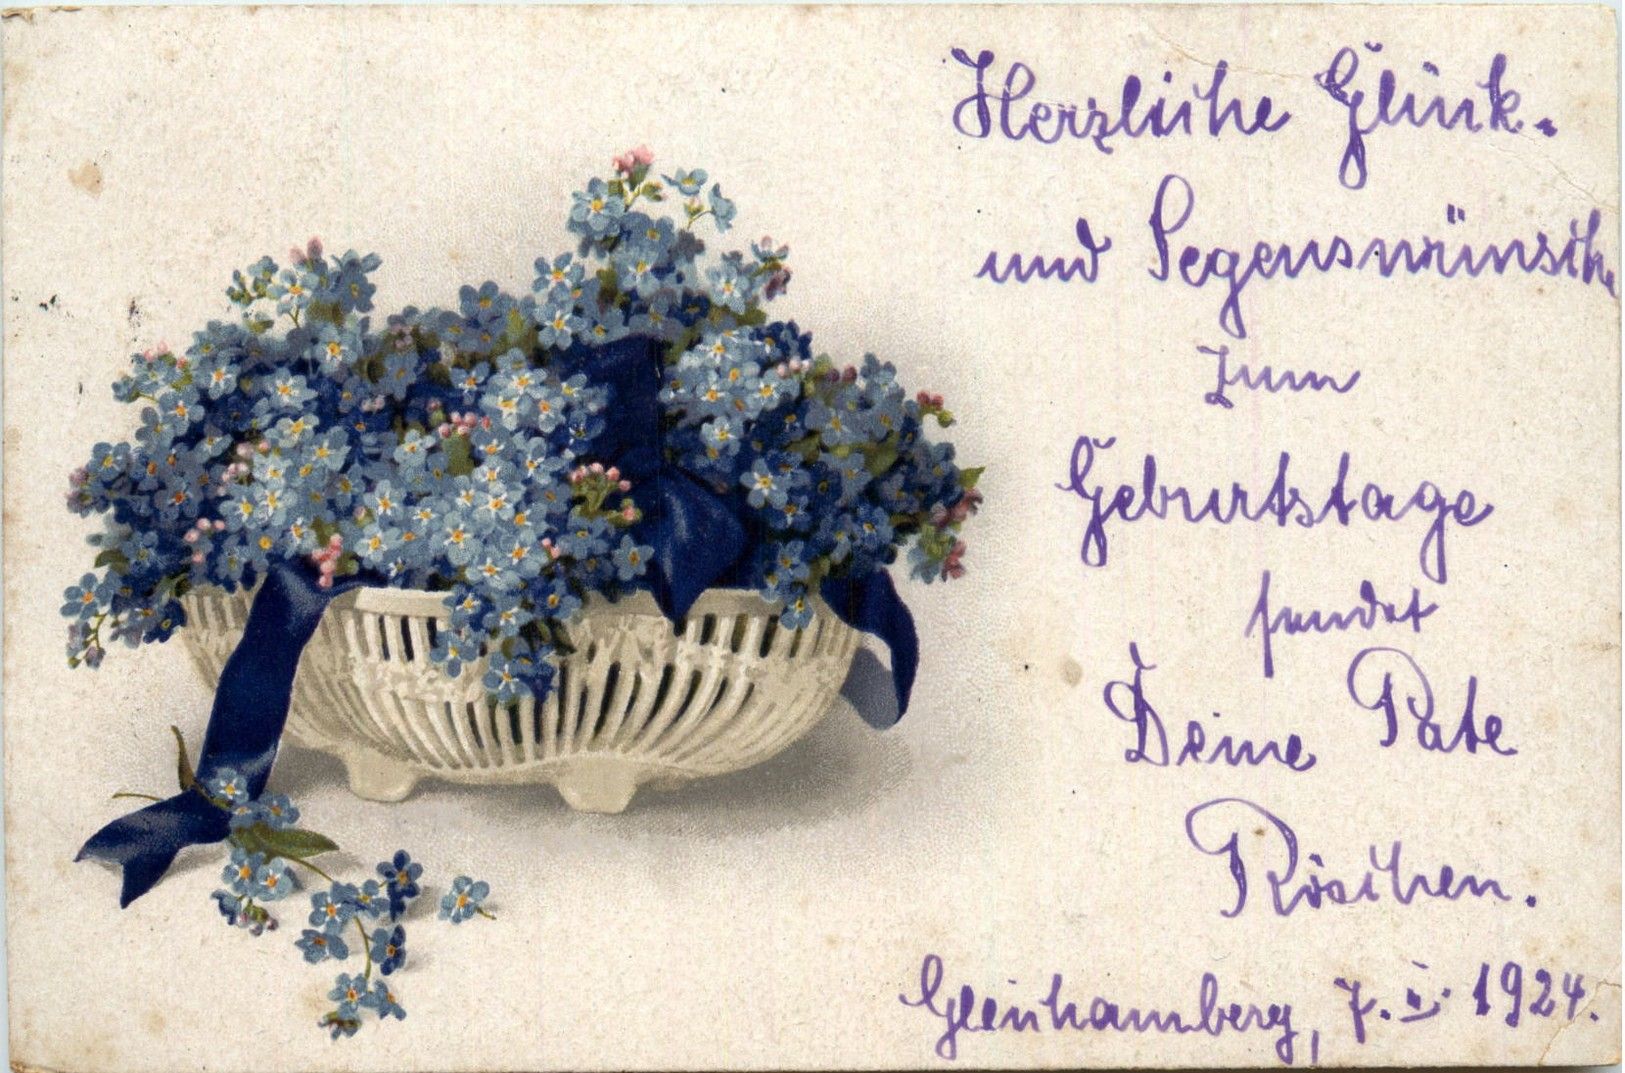 Herzliche Glück-
und Segenswünsche
zum
Geburtstage
sendet
Deine Pate
Röschen.
Gleichamberg, 7. I. 1924.